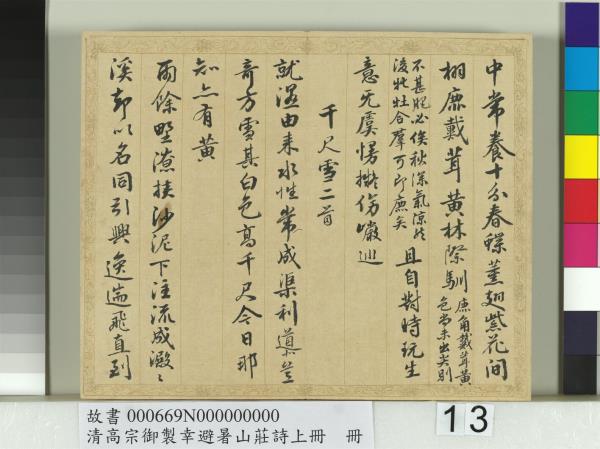 中常養十分春蝶薰翅紫花間
栩鹿戴茸黃林際馴
鹿角戴茸黃
色尚未出尖則
不甚肥必俟秋深氣涼然
後牝牡合羣可即鹿矣
且自對時玩生
意无虞
千尺雪二首
就濕由來水性常成渠利導並
奇方雪其白色高千尺今日那
知亦有黃
雨餘野潦挾沙泥下注流成
溪却以名同引興逸遄飛直到
故書 000669N000000000
清高宗御製幸避暑山莊詩上冊 冊
13